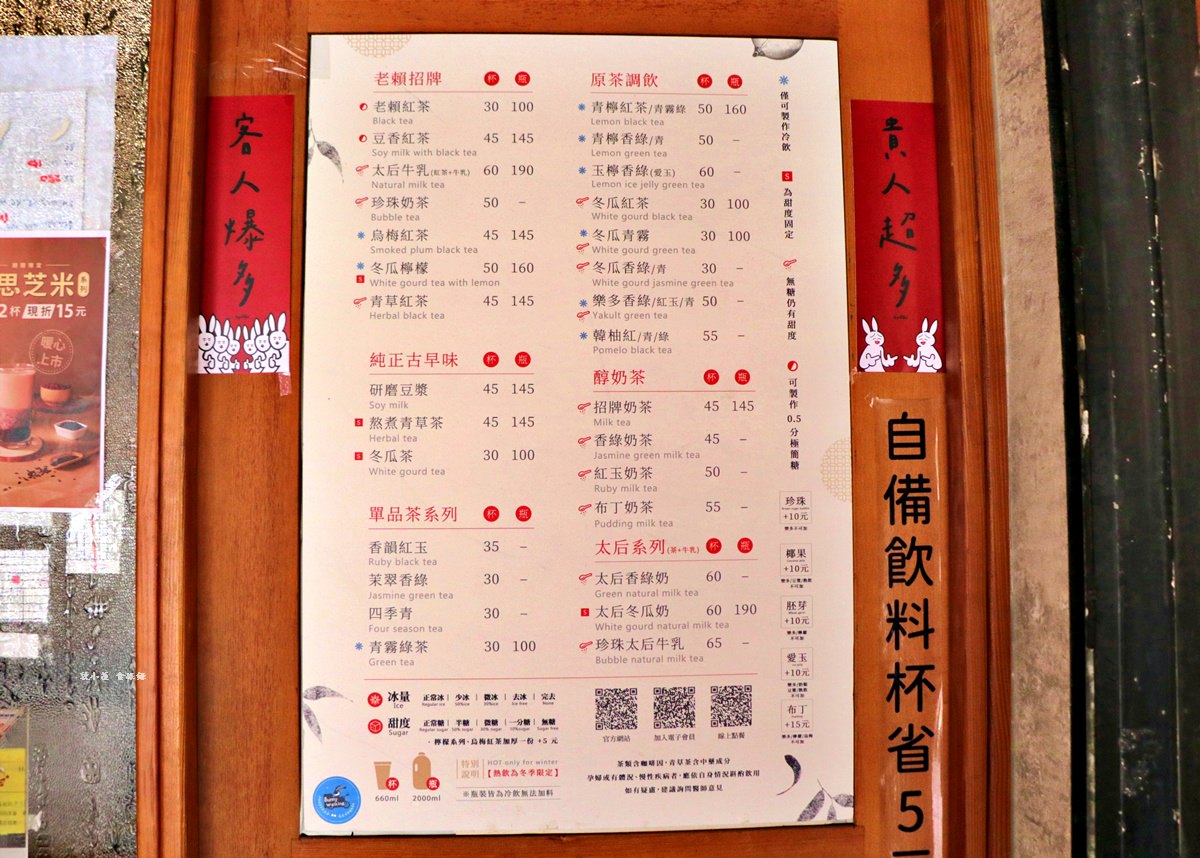 客人爆多
貴人超多
自備飲料杯省5
思芝米
2杯 現折15元
暖心
上市
老賴招牌 杯 瓶
老賴紅茶 30 100
Black tea
豆香紅茶 45 145
Soy milk with black tea
太后牛乳(紅茶+牛乳) 60 190
Natural milk tea
珍珠奶茶 50 –
Bubble tea
烏梅紅茶 45 145
Smoked plum black tea
冬瓜檸檬 50 160
S White gourd tea with lemon
青草紅茶 45 145
Herbal black tea
純正古早味 杯 瓶
研磨豆漿 45 145
Soy milk
S 熬煮青草茶 45 145
Herbal tea
S 冬瓜茶 30 100
White gourd tea
單品茶系列 杯 瓶
香韻紅玉 35 –
Ruby black tea
茉翠香綠 30 –
Jasmine green tea
四季青 30 –
Four season tea
青霧綠茶 30 100
Green tea
原茶調飲 杯 瓶
青檸紅茶/青霧綠 50 160
Lemon black tea
青檸香綠/青 50 –
Lemon green tea
玉檸香綠(愛玉) 60 –
Lemon ice jelly green tea
冬瓜紅茶 30 100
White gourd black tea
冬瓜青霧 30 100
White gourd green tea
冬瓜香綠/青 30 –
White gourd jasmine green tea
樂多香綠/紅玉/青 50 –
Yakult green tea
韓柚紅/青/綠 55 –
Pomelo black tea
醇奶茶 杯 瓶
招牌奶茶 45 145
Milk tea
香綠奶茶 45 –
Jasmine green milk tea
紅玉奶茶 50 –
Ruby milk tea
布丁奶茶 55 –
Pudding milk tea
太后系列(茶+牛乳) 杯 瓶
太后香綠奶 60 –
Green natural milk tea
S 太后冬瓜奶 60 190
White gourd natural milk tea
珍珠太后牛乳 65 –
Bubble natural milk tea
僅可製作冷飲
S 為甜度固定
無糖仍有甜度
可製作0.5分極簡糖
珍珠
+10元
樂多不可加
椰果
+10元
胚芽
+10元
愛玉
+10元
布丁
+15元
冰量 正常冰 | 少冰 | 微冰 | 去冰 | 完去
Ice Regular ice 50%ice 30%ice Ice free None
甜度 正常糖 | 半糖 | 微糖 | 一分糖 | 無糖
Sugar Regular sugar 50% sugar 30% sugar 10%sugar Sugar free
· 檸檬系列·烏梅紅茶加厚一份 +5 元
官方網站 加入電子會員 線上點餐
杯 瓶
660ml 2000ml
特別說明 HOT only for winter
【熱飲為冬季限定】
※瓶裝皆為冷飲無法加料
茶類含咖啡因,青草茶含中藥成分
孕婦或有體況、慢性疾病者,應依自身情況斟酌飲用
如有疑慮,建議詢問醫師意見
Bunny Walking